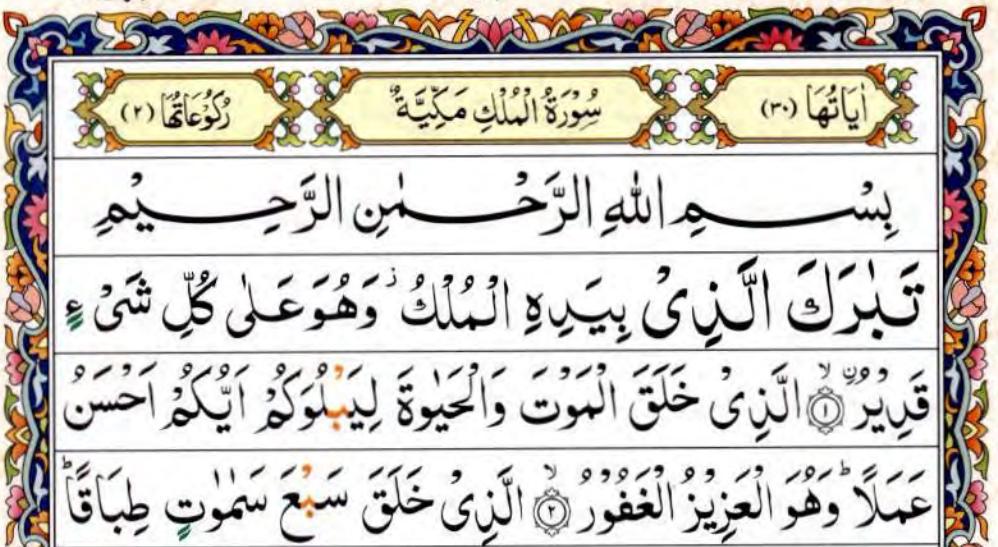 اٰيَاتُهَا (٣٠) سُوْرَةُ الْمُلْكِ مَكِّيَّةٌ رُكُوْعَاتُهَا (٢)
بِسْمِ اللّٰهِ الرَّحْمٰنِ الرَّحِيْمِ
تَبٰرَكَ الَّذِىْ بِيَدِهِ الْمُلْكُ ۫ وَهُوَ عَلٰى كُلِّ شَىْءٍ
قَدِيْرُ ۨۙ ﴿١﴾ الَّذِىْ خَلَقَ الْمَوْتَ وَالْحَيٰوةَ لِيَبْلُوَكُمْ اَيُّكُمْ اَحْسَنُ
عَمَلًا ؕ وَهُوَ الْعَزِيْزُ الْغَفُوْرُ ۙ ﴿٢﴾ الَّذِىْ خَلَقَ سَبْعَ سَمٰوٰتٍ طِبَاقًا ؕ